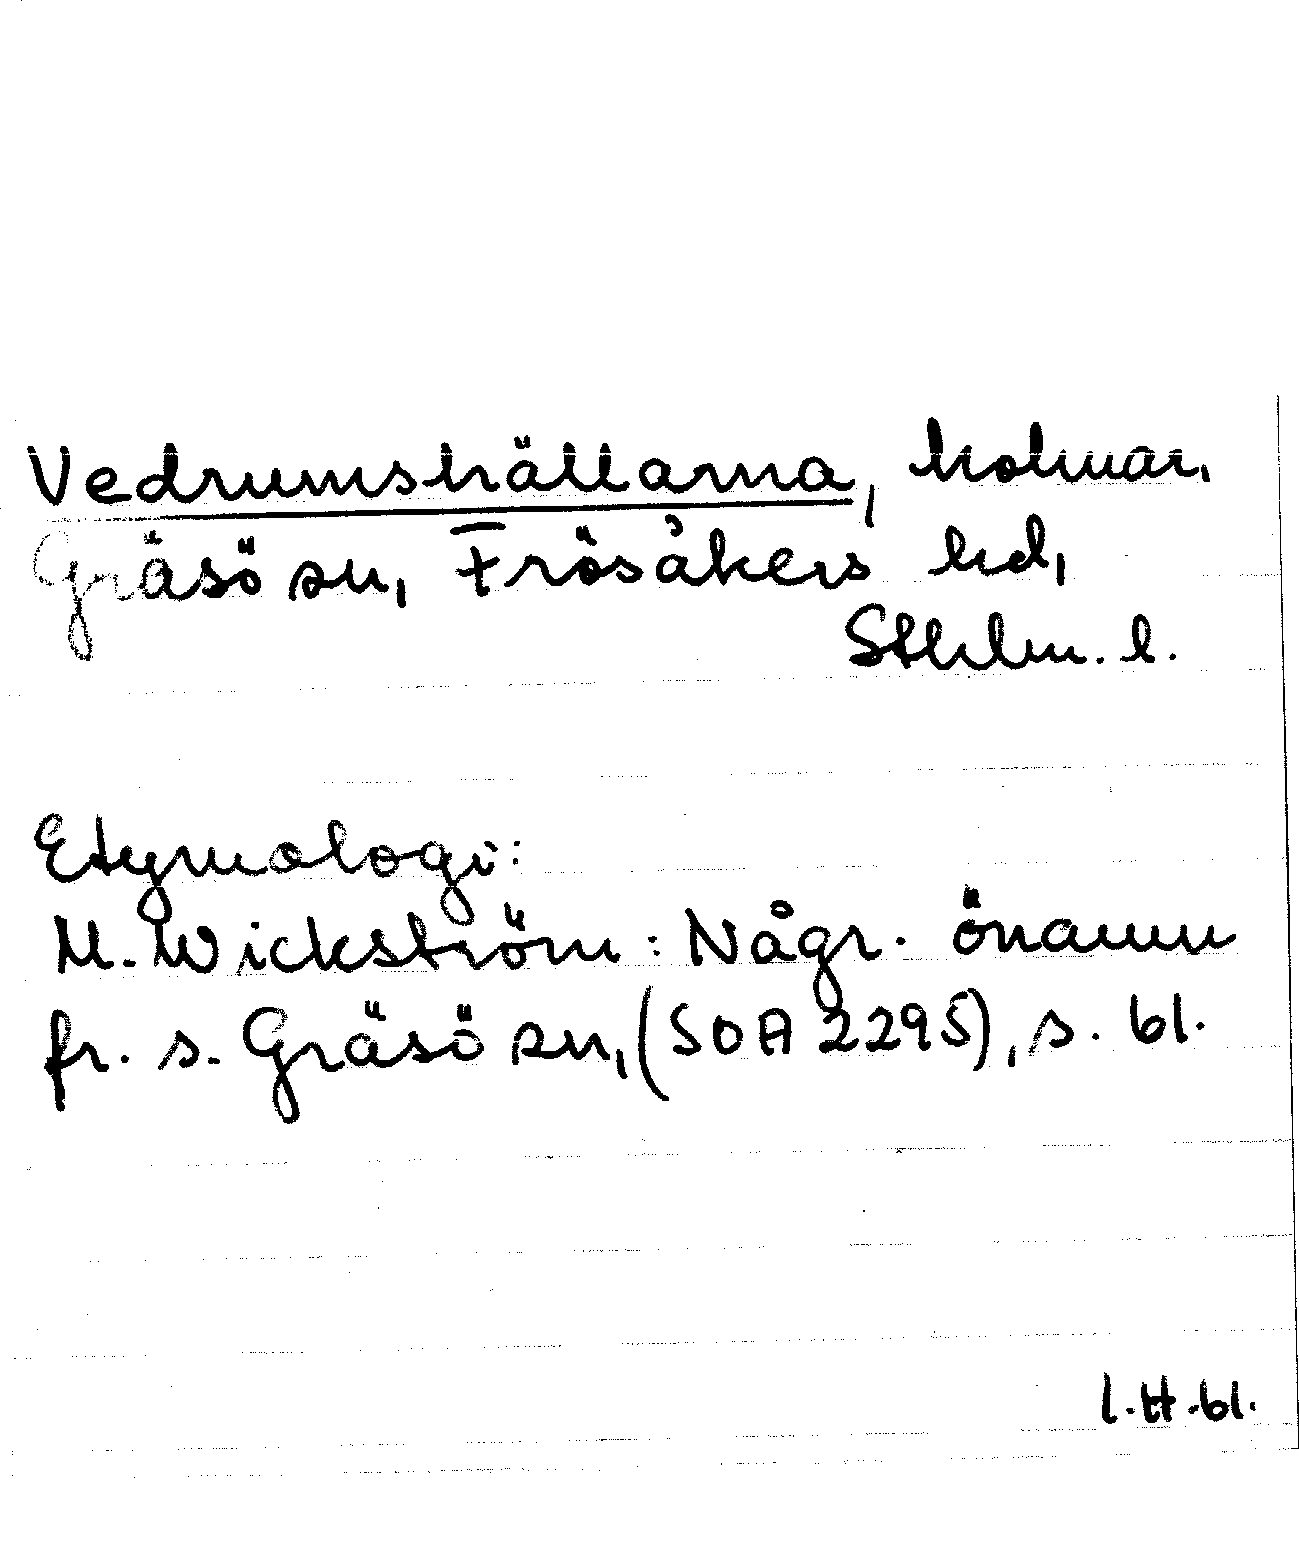 Vedrumshällarna, holmar,
Gräsö sn, Frösåkers hd,
Sthlm. l.
Etymologi:
M. Wickström: Någr. önamn
fr. s. Gräsö sn, (SOA 2295), s. 61.
I.H.61.